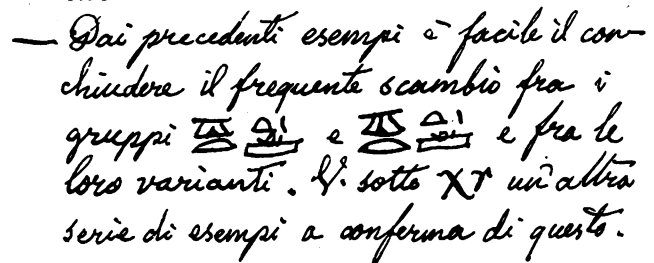 — Dai precedenti esempi è facile il con-
chiudere il frequente scambio fra i
gruppi e e fra le
loro varianti. V. sotto χr un'altra
serie di esempi a conferma di questo.